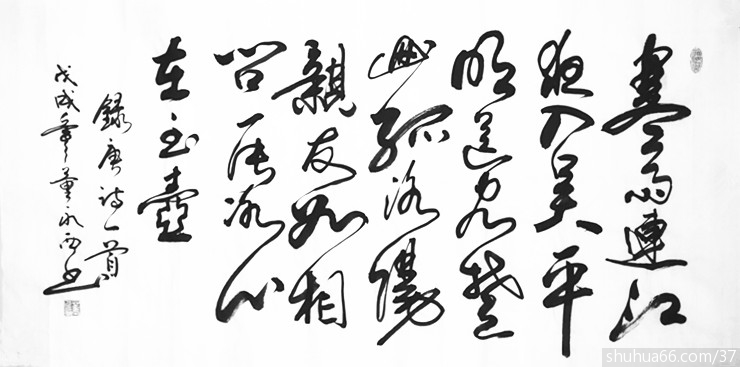 寒雨連江
夜入吳平
明送客楚
山孤洛陽
親友如相
問一片冰心
在玉壺
錄唐詩一首
戊戌年董永西书
shuhua66.com/37